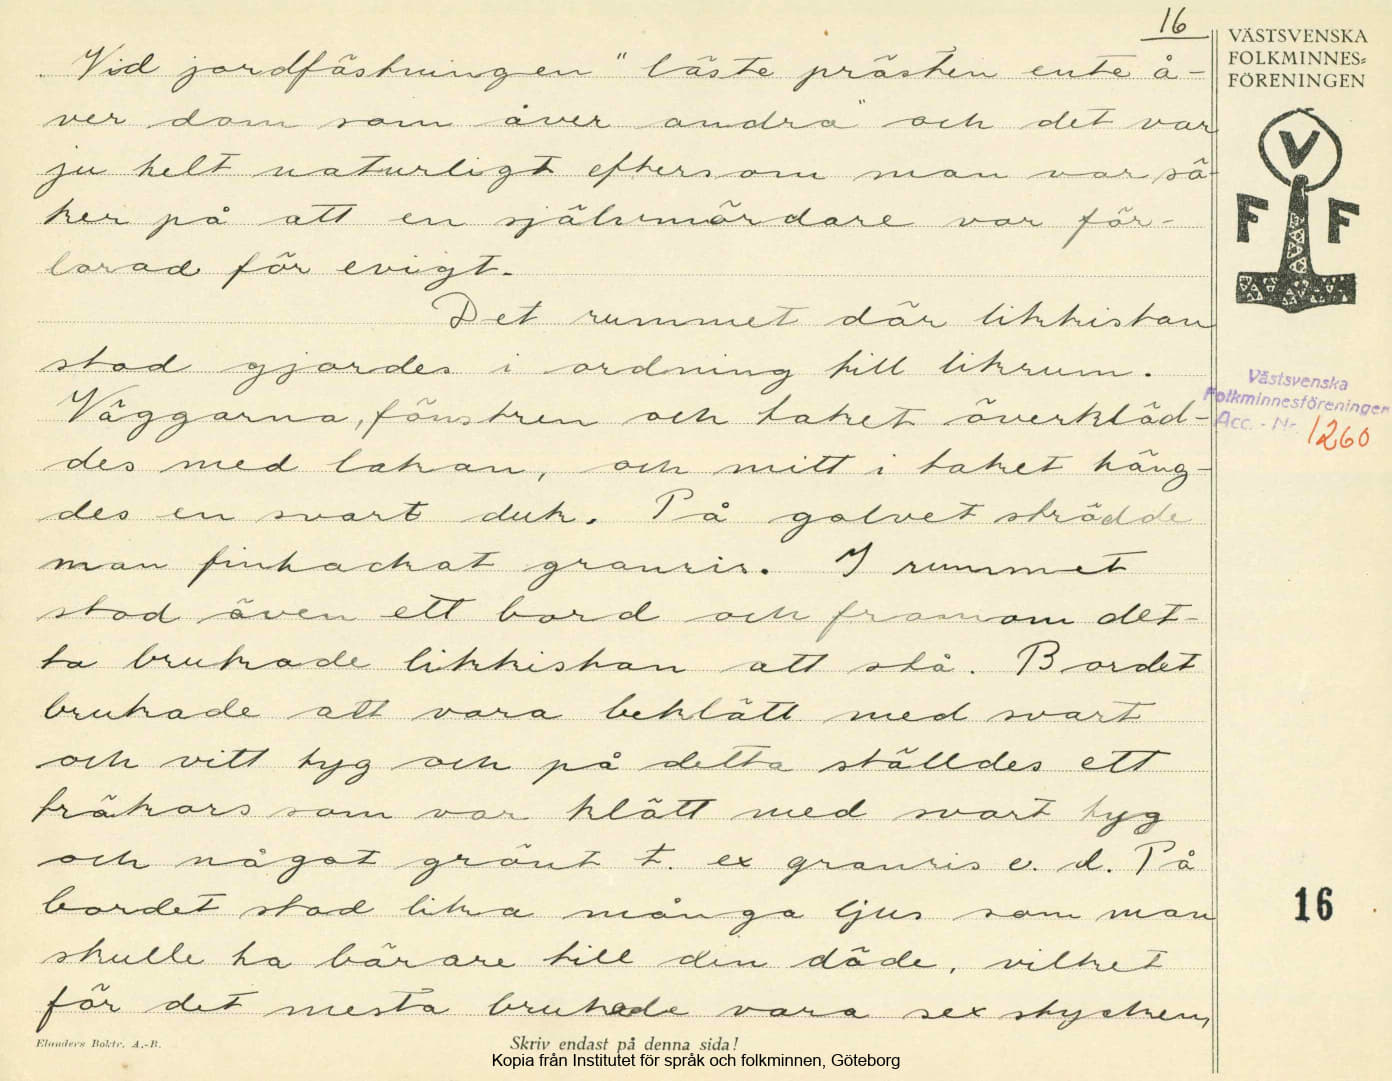 16
VÄSTSVENSKA
FOLKMINNES=
FÖRENINGEN
V
F F
Västsvenska
Folkminnesföreningen
Acc. - Nr. 1260
Vid jordfästningen "läste prästen ente å-
ver dom som åver andra" och det var
ju helt naturligt eftersom man var sä-
ker på att en självmördare var för-
lorad för evigt.
Det rummet där likkistan
stod gjordes i ordning till likrum.
Väggarna, fönstren och taket överkläd-
des med lakan, och mitt i taket häng-
des en svart duk. På golvet strödde
man finhackat granris. I rummet
stod även ett bord och framom det-
ta brukade likkistan att stå. Bordet
brukade att vara beklätt med svart
och vitt tyg och på detta ställdes ett
träkors som var klätt med svart tyg
och något grönt t. ex granris e. d. På
bordet stod lika många ljus som man
skulle ha bärare till din döde, vilket
för det mesta brukade vara sex stycken,
16
Elanders Boktr. A.-B.
Skriv endast på denna sida!
Kopia från Institutet för språk och folkminnen, Göteborg